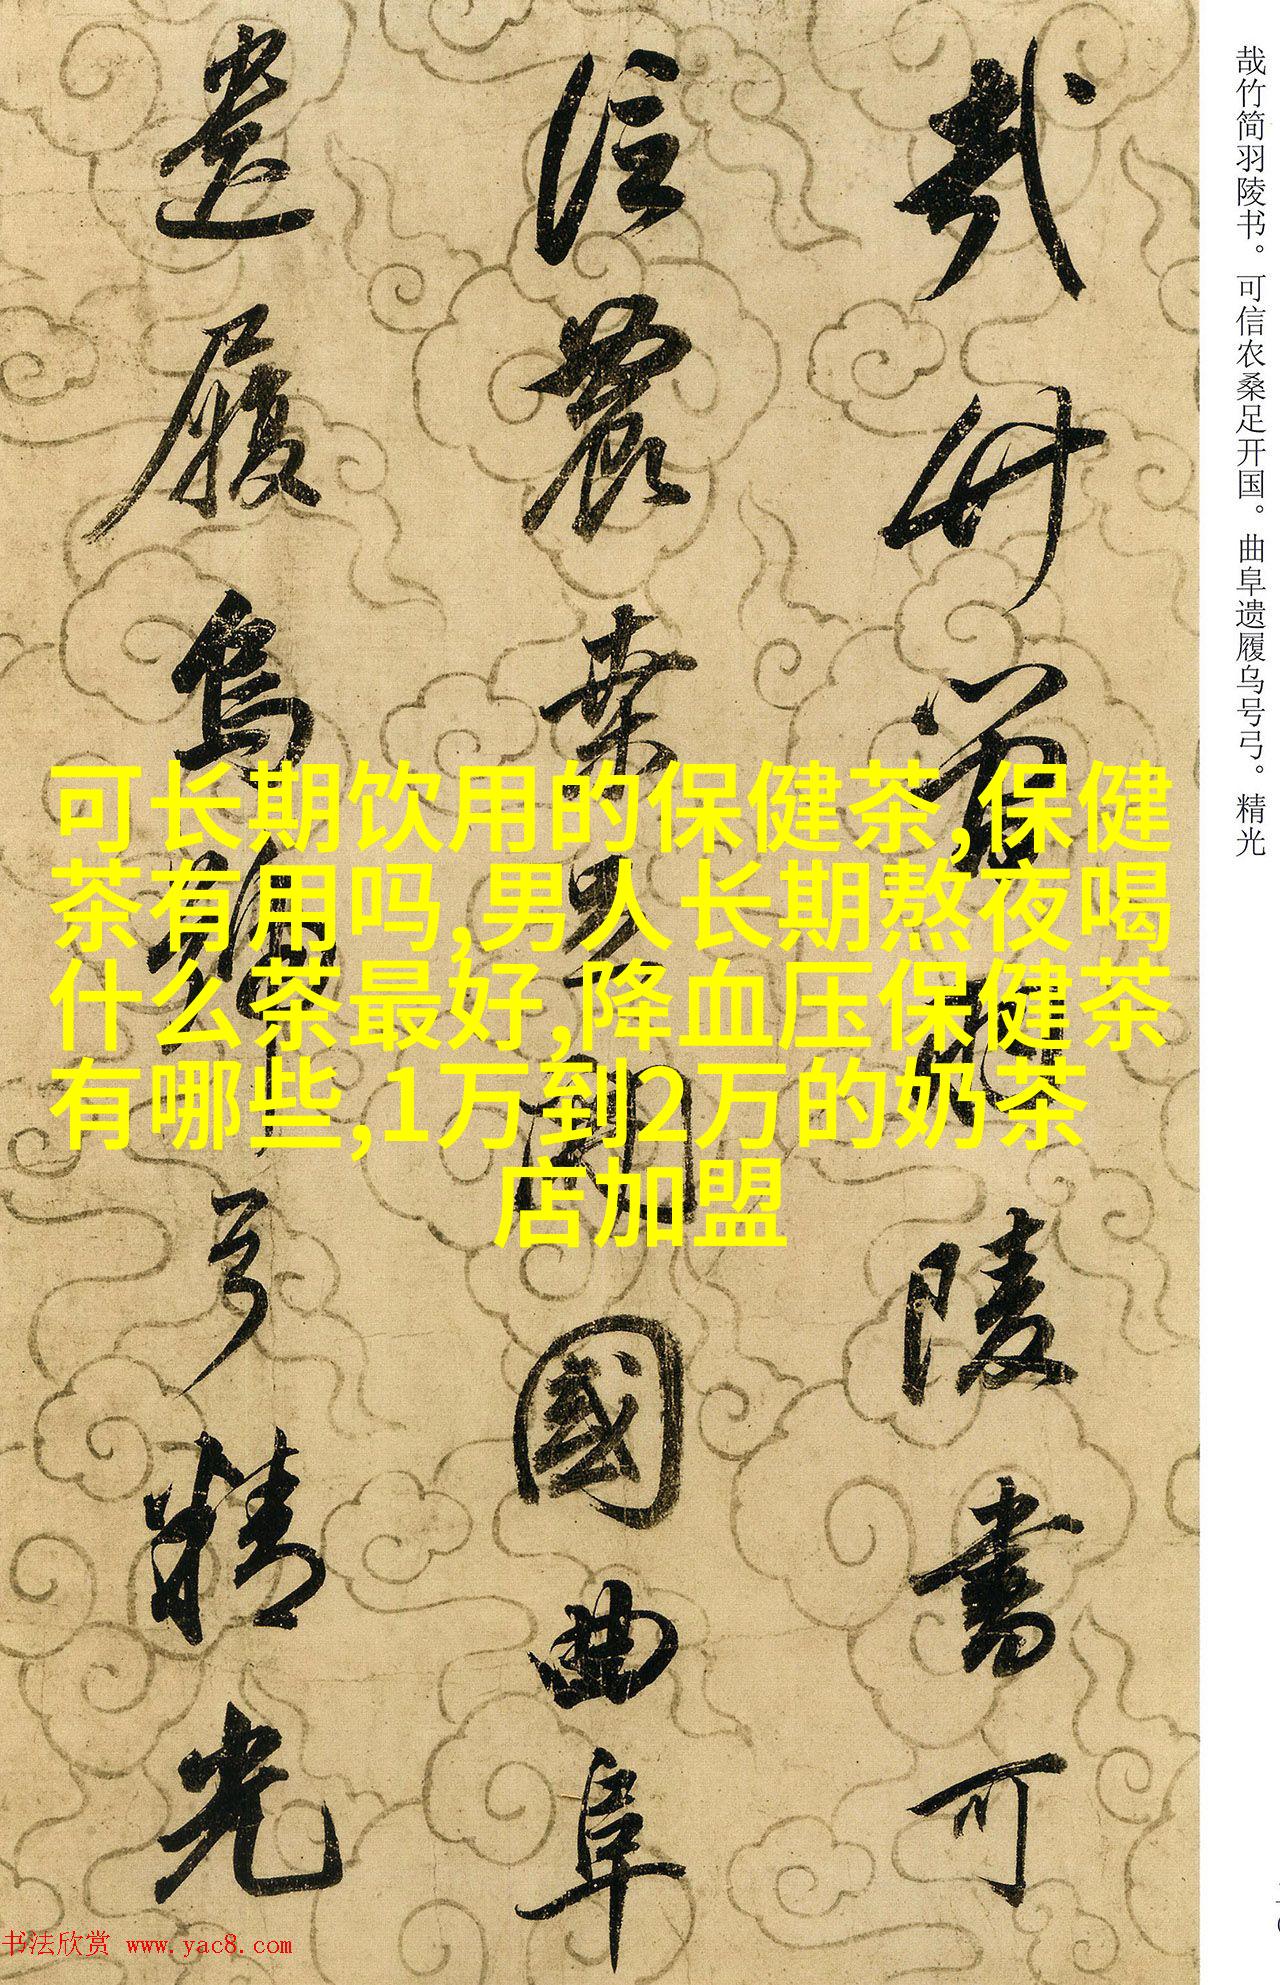 哉竹简羽陵书。可信农桑足开国。曲阜遗履乌号弓。精光
哉竹簡羽陵書可
信農桒足開國曲阜
遺履烏號弓精光
可长期饮用的保健茶,保健
茶有用吗,男人长期熬夜喝
什么茶最好,降血压保健茶
有哪些,1万到2万的奶茶
店加盟
书法欣赏 www.yac8.com